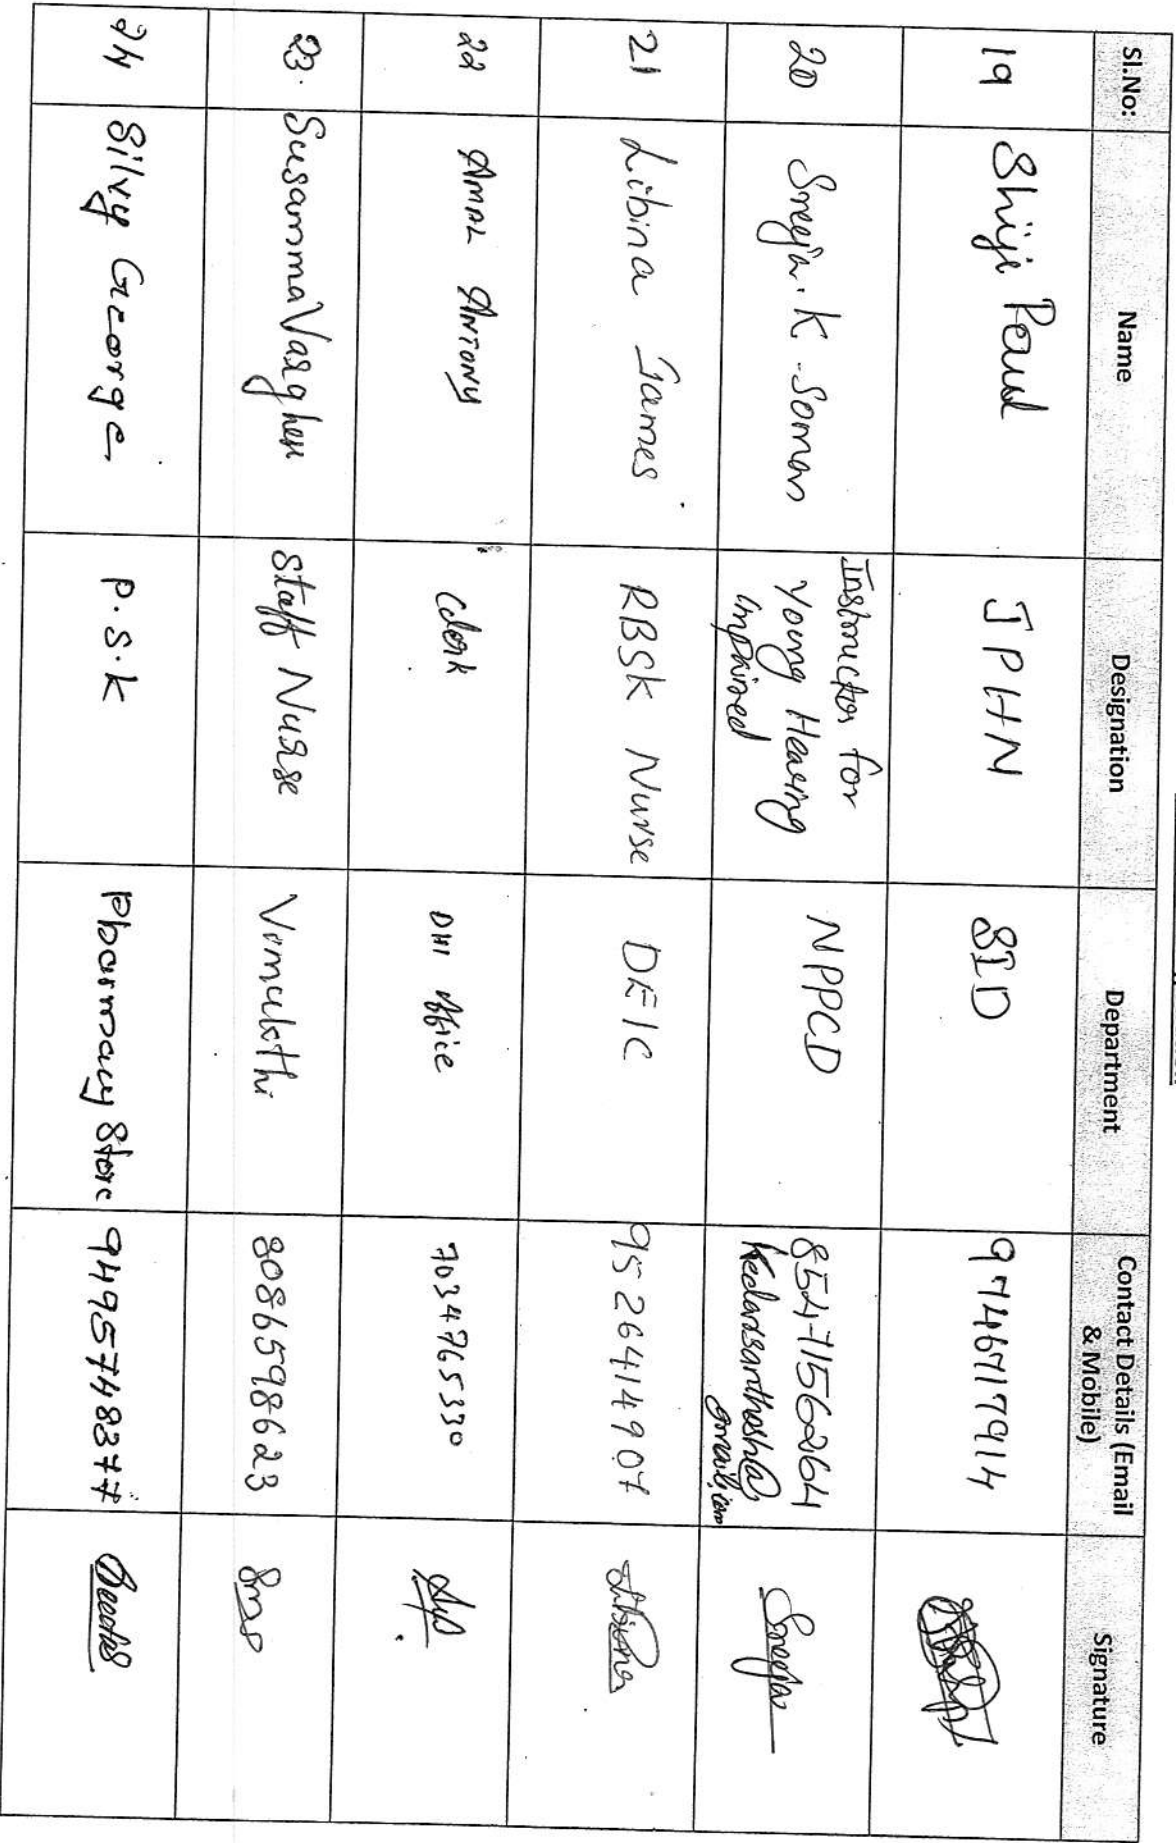 Sl.No: Name Designation Department Contact Details (Email & Mobile) Signature
19 Shiji Paul JPHN SID 9746717914
20 Sreeja.K.Soman Instructor for Young Hearing impaired NPPCD 8547156264 Kedarsanthosh@gmail.com Sreeja
21 Libina James RBSK Nurse DEIC 9526414907 Libina
22 AMAL ANTONY Clerk DHI office 7034765330
23. Susamma Varghese Staff Nurse Vimukthi 8086598623
24 Silvy George P.S.K Pharmacy Store 9495748377